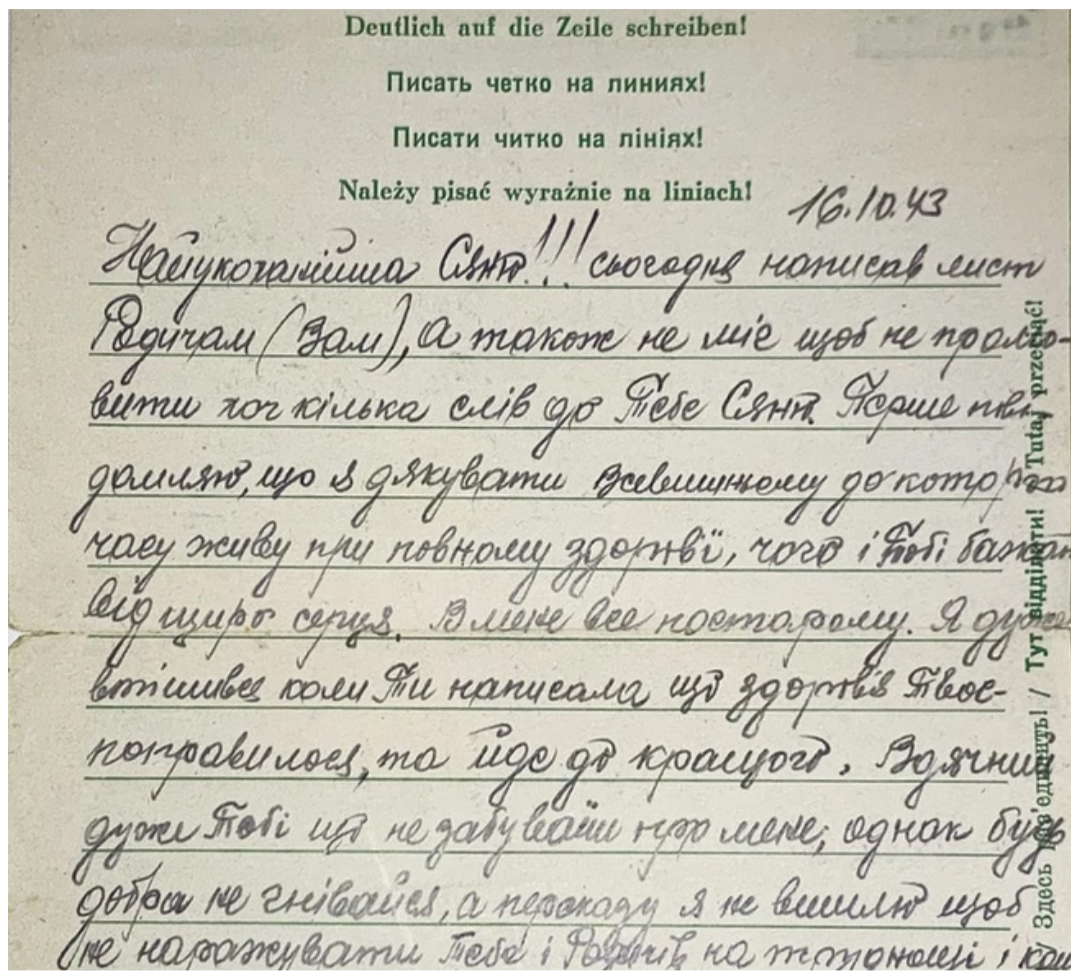 Deutlich auf die Zeile schreiben!
Писать четко на линиях!
Писати читко на лініях!
Należy pisać wyraźnie na liniach!
16.10.43
Найукоханійша Сяню!!! сьогодня написав лист
Родичам (Вам), а також не міг щоб не промо-
вити хоч кілька слів до Тебе Сяню. Перше пові-
домляю, що я дякувати Всевишньому до котрого
часу живу при повному здоровї, чого і Тобі бажаю
від щиро серця. В мене все постарому. Я дуже
втішився коли Ти написала що здоровя Твоє-
поправилося, та йде до кращого. Вдячний
дуже Тобі що не забуваєш про мене, однак будь
добра не гнівайся, а переказу я не вишлю щоб
не наражувати Тебе і Родичів на
Здесь / Тут відділяти! Tutaj przeciąć!